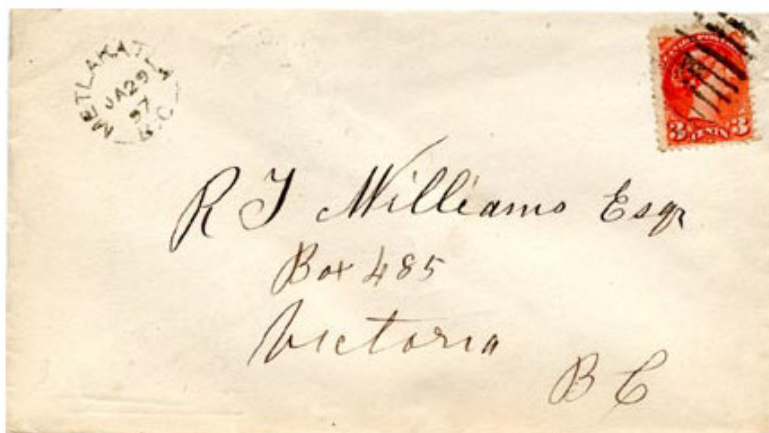 METLAKATLA
JA 29
97
B.C.
3 CENTS 3
R T Williams Esqr
Box 485
Victoria
B C